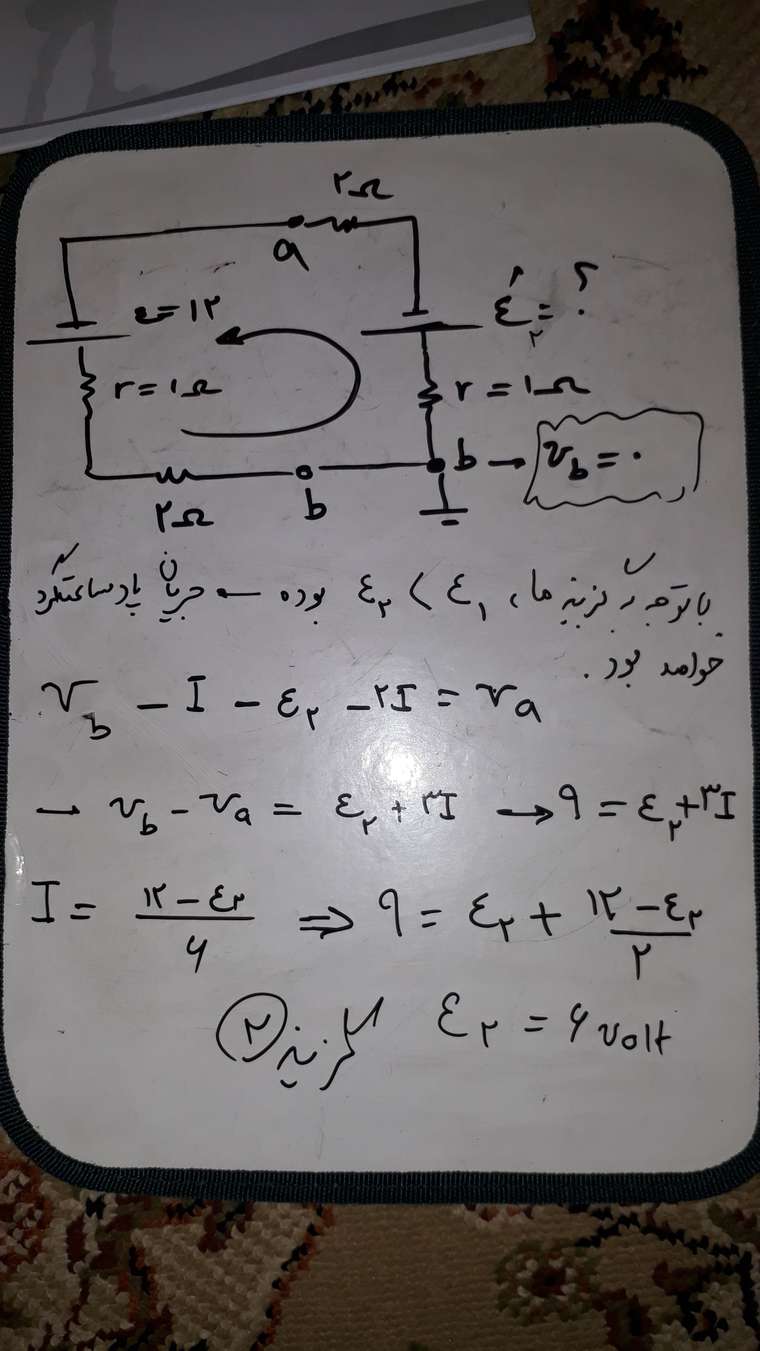 ۲Ω
a
ε=۱۲
έ₂=؟
r=۱Ω
r=۱Ω
b → v_b=۰
۲Ω
b
با توجه به گزینه ها، ε₂ < ε₁ بوده ← جریان پادساعتگرد
خواهد بود.
V_b - I - ε₂ - ۲I = v_a
→ v_b - v_a = ε₂ + ۳I → ۹ = ε₂ + ۳I
I = (۱۲ - ε₂)/۶ ⇒ ۹ = ε₂ + (۱۲ - ε₂)/۲
ε₂ = ۶ volt گزینه ۲